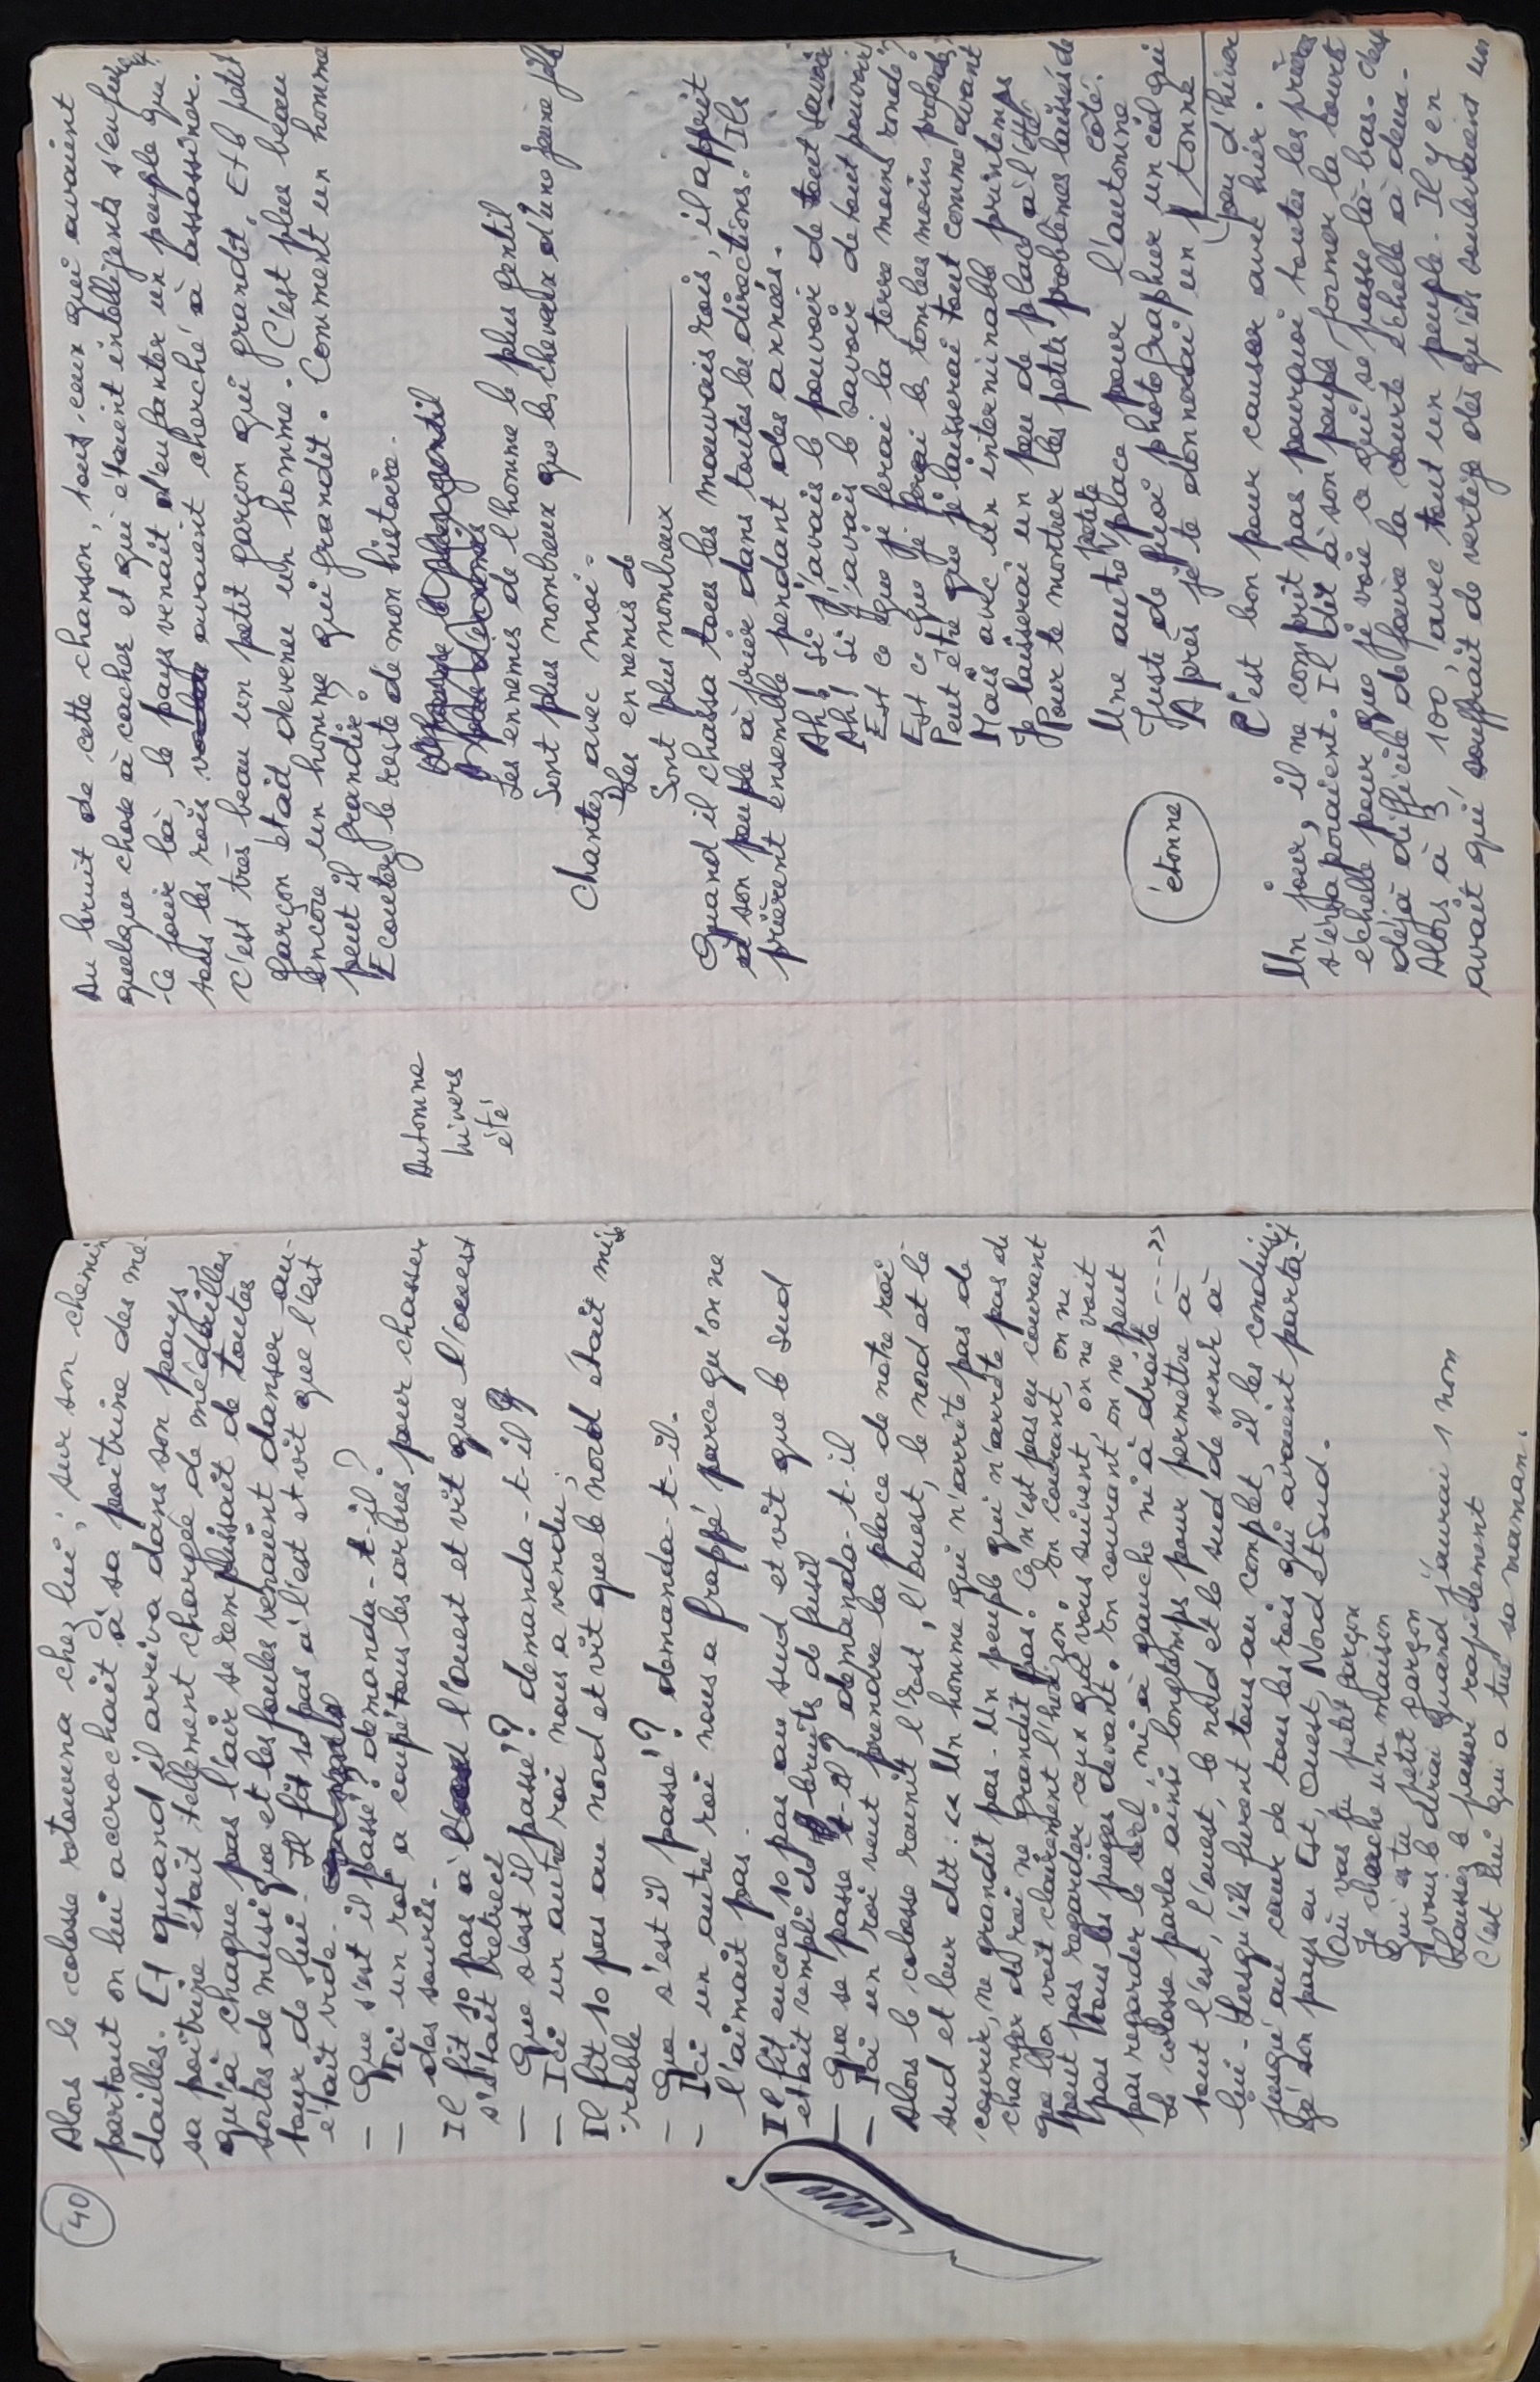 40
Alors le colosse retourna chez lui ; sur son chemin
partout on lui accrochait à sa poitrine des mé-
dailles. Et quand il arriva dans son pays,
sa poitrine était tellement chargée de médailles
qu'à chaque pas l'air se remplissait de toutes
sortes de musique et les foules venaient danser au-
tour de lui. Il fit 10 pas à l'est et vit que l'est
était vide.
— Que s'est il passé ? demanda-t-il ?
— Ici un roi a coupé tous les arbres pour chasser
des souris.
Il fit 10 pas à l'ouest et vit que l'ouest
s'était rétréci
— Que s'est il passé ? demanda-t-il
— Ici un autre roi nous a vendu ;
Il fit 10 pas au nord et vit que le nord était misé
rable
— Que s'est il passé ? demanda-t-il.
— Ici un autre roi nous a frappé parce qu'on ne
l'aimait pas.
Il fit encore 10 pas au sud et vit que le sud
était rempli de bruits de fusil
— Que se passe t-il ? demanda-t-il
— Ici un roi veut prendre la place de notre roi
Alors le colosse réunit l'est, l'ouest, le nord et le
sud et leur dit : « Un homme qui n'arrête pas de
courir, ne grandit pas. Un peuple qui n'arrête pas de
changer de roi ne grandit pas. Ce n'est pas en courant
que l'on voit clairement l'horizon. En courant, on ne
peut pas regarder ceux qui vous suivent, on ne voit
pas tous les pièges devant. En courant, on ne peut
pas regarder le ciel, ni à gauche ni à droite ---->>
Le colosse parla ainsi longtemps pour permettre à
tout l'est, l'ouest, le nord et le sud de venir à
lui. Lorsqu'ils furent tous au complet, il les conduisi
jusqu'au cœur de tous les rois qui avaient parta-
gé son pays en Est, Ouest, Nord et Sud.
Où vas tu petit garçon
Je cherche une maison
Qui es tu petit garçon
Je vous le dirai quand j'aurai 1 nom
Laissez le passer rapidement
C'est lui qui a tué sa maman.
Du bruit de cette chanson, tous ceux qui avaient
quelque chose à cacher et qui étaient intelligents s'enfuire
Ce jour là, le pays venait d'enfanter un peuple que
tous les rois avaient cherché à assassiner.
C'est très beau un petit garçon qui grandit. Et le petit
garçon était devenu un homme. C'est plus beau
encore un homme qui grandit. Comment un homme
peut il grandir ?
Ecoutez le reste de mon histoire.
Automne
hivers
été
Les ennemis de l'homme le plus gentil
Sont plus nombreux que les cheveux d'une jeune fille
Chantez avec moi.
Les ennemis de
Sont plus nombreux
Quand il chassa tous les mauvais rois, il apprit
à son peuple à prier dans toutes les directions. Ils
prièrent ensemble pendant des années.
Ah ! Si j'avais le pouvoir de tout savoir
Ah ! Si j'avais le savoir de tout pouvoir
Est ce que je ferai la terre moins ronde ?
Est ce que je ferai les tombes moins profondes ?
Peut être que je laisserai tout comme avant
Mais avec un interminable printemps
Je laisserai un peu de place à l'été
Pour te montrer les petits problèmes laissés de
côté.
Une autre petite place pour l'automne
Juste de quoi photographier un ciel qui
tonne
Après je te donnerai un peu d'hiver
C'est bon pour causer avec hier.
étonne
Un jour, il ne comprit pas pourquoi toutes les prières
s'évaporaient. Il dit à son peuple former la courte
échelle pour que je voie ce qui se passe là-bas. C'est
déjà difficile de faire la courte échelle à deux.
Alors à 3, 100, avec tout un peuple. Il y en
avait qui souffrait de vertige dès qu'ils soulevaient un